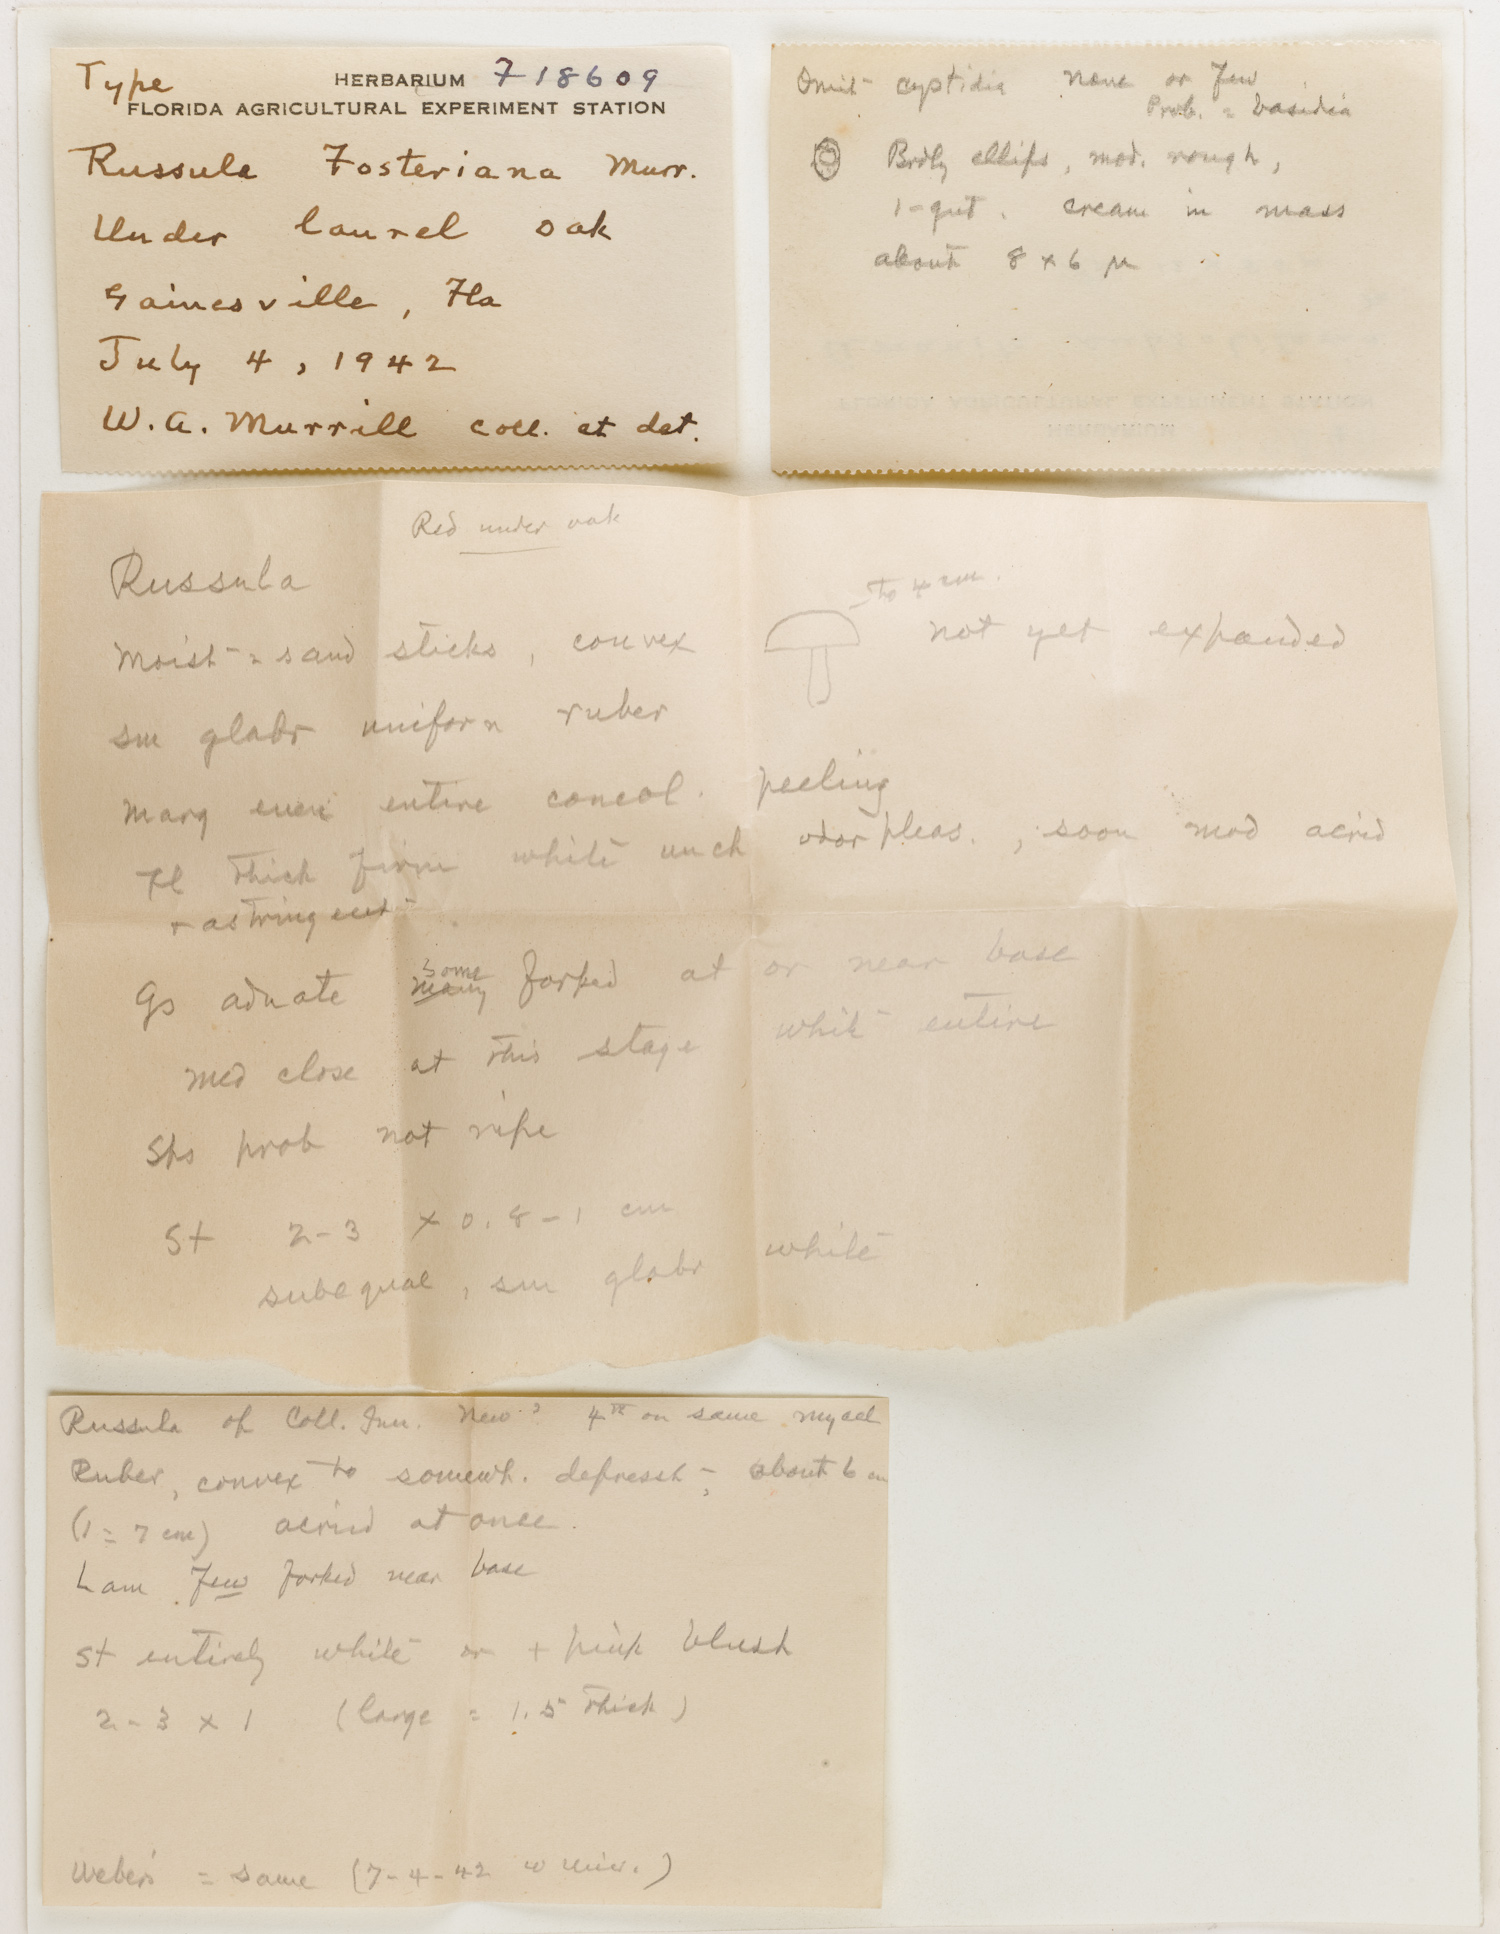 Type HERBARIUM F18609
FLORIDA AGRICULTURAL EXPERIMENT STATION
Russula Fosteriana Murr.
Under laurel oak
Gainesville, Fla
July 4, 1942
W.A. Murrill coll. et det.
Omit cystidia none or few
Prob. = basidia
Brdly ellips, mod. rough,
1-gut. cream in mass
about 8 x 6 µ
Red under oak
Russula
to 4 cm.
Moist = sand sticks, convex not yet expanded
sm glabr uniform ruber
marg even entire concol. peeling
Fl thick firm white unch odor pleas., soon mod acrid
+ astringent
some
Gs adnate many forked at or near base
med close at this stage white entire
Sps prob not ripe
St 2-3 x 0.8-1 cm
subequal, sm glabr white
Russula of Coll. Inn. New? 4th on same mycel
Ruber, convex to somewh. depresst, about 6 cm
(1 = 7 cm) acrid at once.
Lam few forked near base
St entirely white or + pink blush
2-3 x 1 (large = 1.5 thick)
Weber's = same (7-4-42 w Univ.)